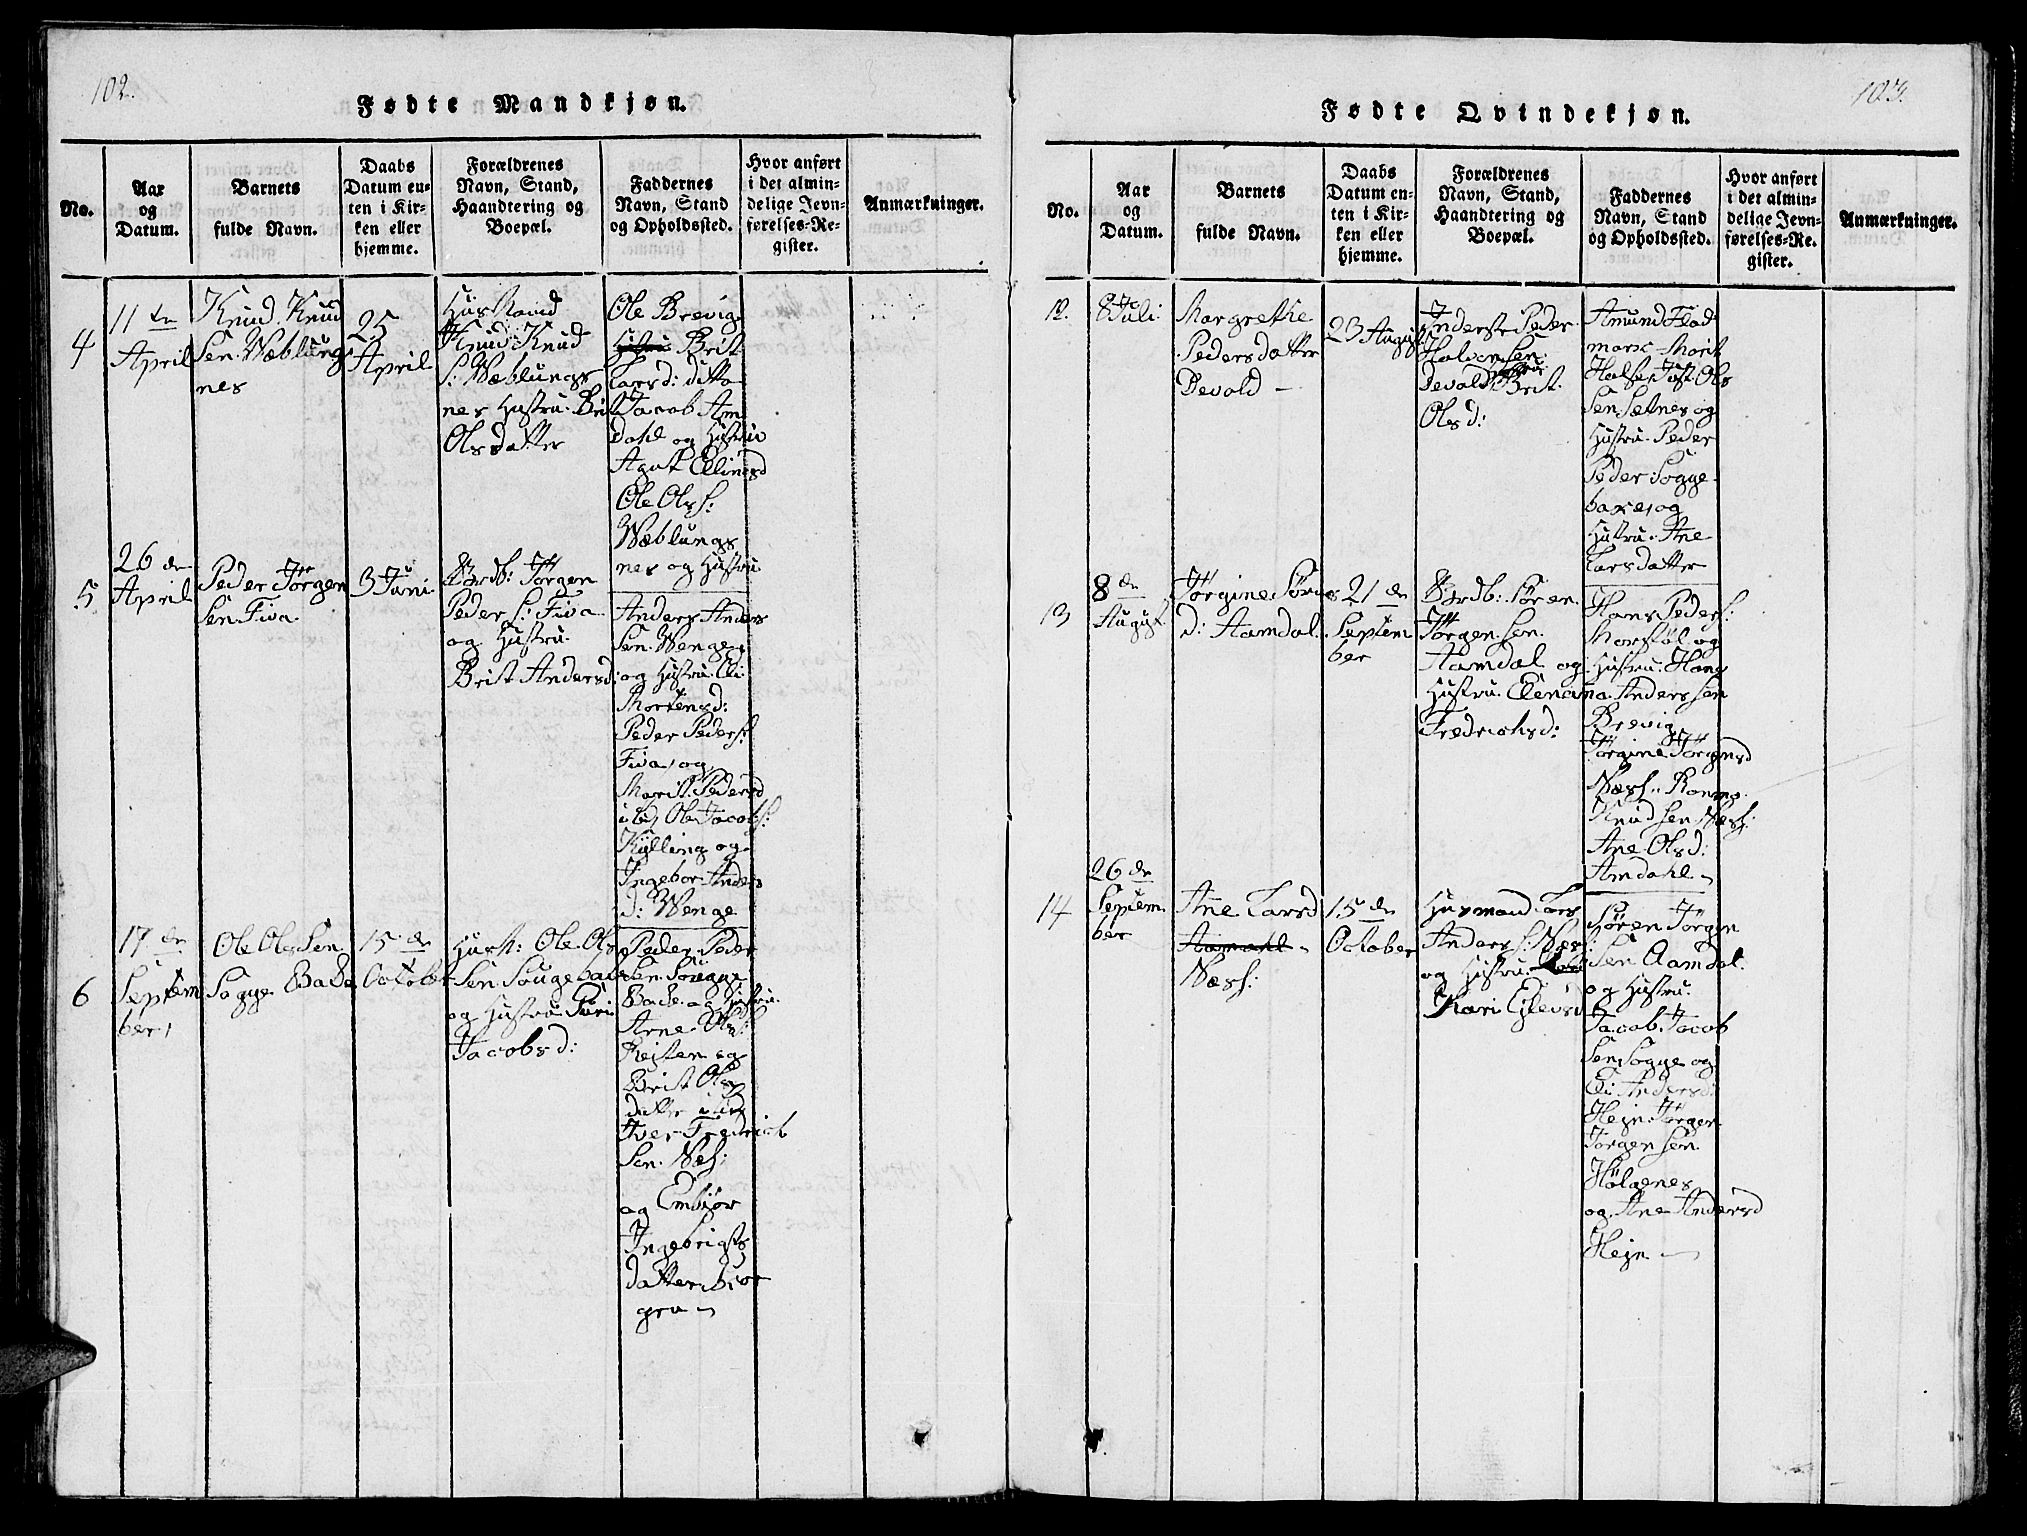 102.
Fødte Mandkjøn.
No.
Aar
og
Datum.
Barnets
fulde Navn.
Daabs
Datum en-
ten i Kir-
ken eller
hjemme.
Forældrenes
Navn, Stand,
Haandtering og
Boepæl.
Faddernes
Navn, Stand
og Opholdssted.
Hvor anført
i det almin-
delige Jevn-
førelses-Re-
gister.
Anmærkninger.
4
11 te
April
Knud Knud
Sen Wæblungs
nes
25
April
Husmand
Knud Knud
S: Wæblungs
nes Hustru Brit
Olsdatter
Ole Brevig
Brit
Larsd: ditto
Jacob Am
dahl og Hustrue
Agat Ellingsd
Ole Ols:
Wæblungs
nes og Hustru
5
26 de
April
Peder Jørgen
Sen Fiva
3 Juni
Brdb: Jørgen
Peder S: Fiva
og Hustru
Brit Andersd:
Anders Anders
Sen Wenge
og Hustru Eli
Mortensd:
Peder Peders:
Fiva, og
Marit Pedersd
Ole Jacobs:
Kylling og
Ingebor Anders
d: Wenge
6
17 de
Septem
ber,
Ole Ols Sen
Sogge Bake
15 de
October
Husm: Ole Ols
Sen Souge bak
og Hustru Siri
Jacobsd:
Peder Peder
Sen Sougge
Bake og Hustru
Arne Ols:
og
Brit Ols
datter
Iver Fredrich
Sen Næs:
og Embiør
Ingebrigts
datter

103.
Fødte Qvindekjøn.
No.
Aar
og
Datum.
Barnets
fulde Navn.
Daabs
Datum en-
ten i Kir-
ken eller
hjemme.
Forældrenes
Navn, Stand,
Haandtering og
Boepæl.
Faddernes
Navn, Stand
og Opholdssted.
Hvor anført
i det almin-
delige Jevn-
førelses-Re-
gister.
Anmærkninger.
12.
8 Juli
Margrethe
Peders datter
Devold —
23 August
Inderste Peder
Halvor Sen
Devold Hustru Brit
Olsd:
Amund Flad
mark Marit
Halse, Just Ols
Sen Sætnes og
Hustru Peder
Peder: Sogge
bake, og
Hustru Ane
Larsdatter
13
8 de
August
Jørgine Sørens
d: Aamdal
21 de
Septem
ber
Brdb: Søren
Jørgen Sen
Aamdal og
Hustru Elena
Fredrichsd:
Hans Peders:
Morstøl og
Hustru Hans
Anders Sen
Brevig
Jørgine Jørgensd
Næss: Rasmus
Knud Sen Næss:
Ane Olsd:
Amdahl —
14
26 de
Septem
ber
Ane Larsd
Aamdahl
Næss:
15 de
October
Husmand Lars
Anders S: Næs:
og Hustru
Kari
Søren Jørgen
Sen Aamdal
og Hustru
Jacob Jacob
Sen Sogge og
Eli Andersd:
Hejn Jørgen
Jørgen Sen
Hølgenes
og Ane Andersd
Hejn —